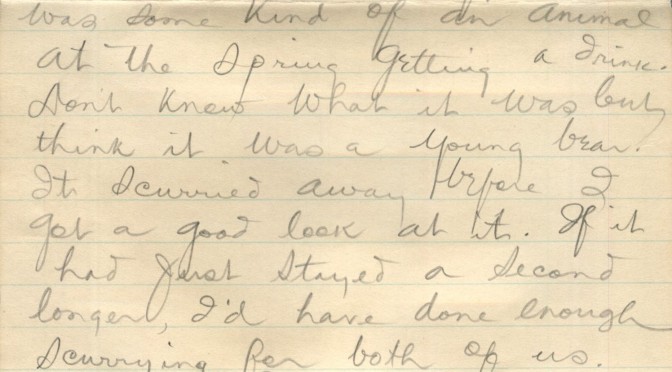 was some kind of an animal
at the spring getting a drink.
Don't know what it was but
think it was a young bear.
It scurried away before I
got a good look at it. If it
had just stayed a second
longer, I'd have done enough
scurrying for both of us.